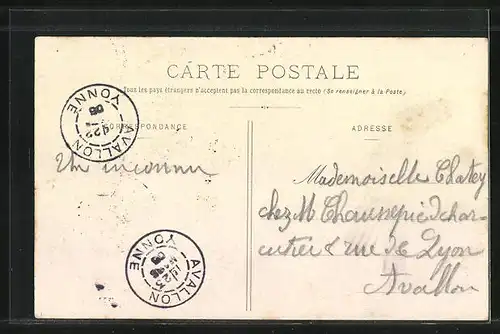 CARTE POSTALE
Tous les pays étrangers n'acceptent pas la correspondance au recto (Se renseigner à la Poste)
CORRESPONDANCE
ADRESSE
AVALLON
YONNE
22
Un inconnu
Mademoiselle Chatey
chez M Chaussepié char
cutier rue de Lyon
Avallon
AVALLON
YONNE